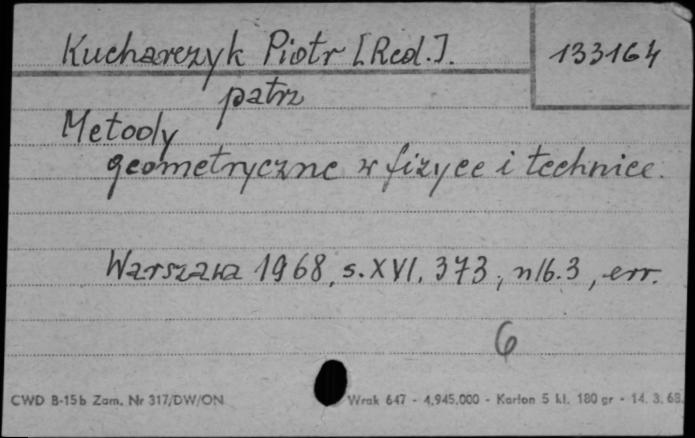 Kucharczyk Piotr [Red.].
133164
patrz
Metody
geometryczne w fizyce i technice.
Warszawa 1968, s. XVI, 373, nlb. 3, err.
6
CWD B-15b Zam. Nr 317/DW/ON
Wrak 647 - 4.945.000 - Karton 5 kl. 180 gr - 14. 3. 68.